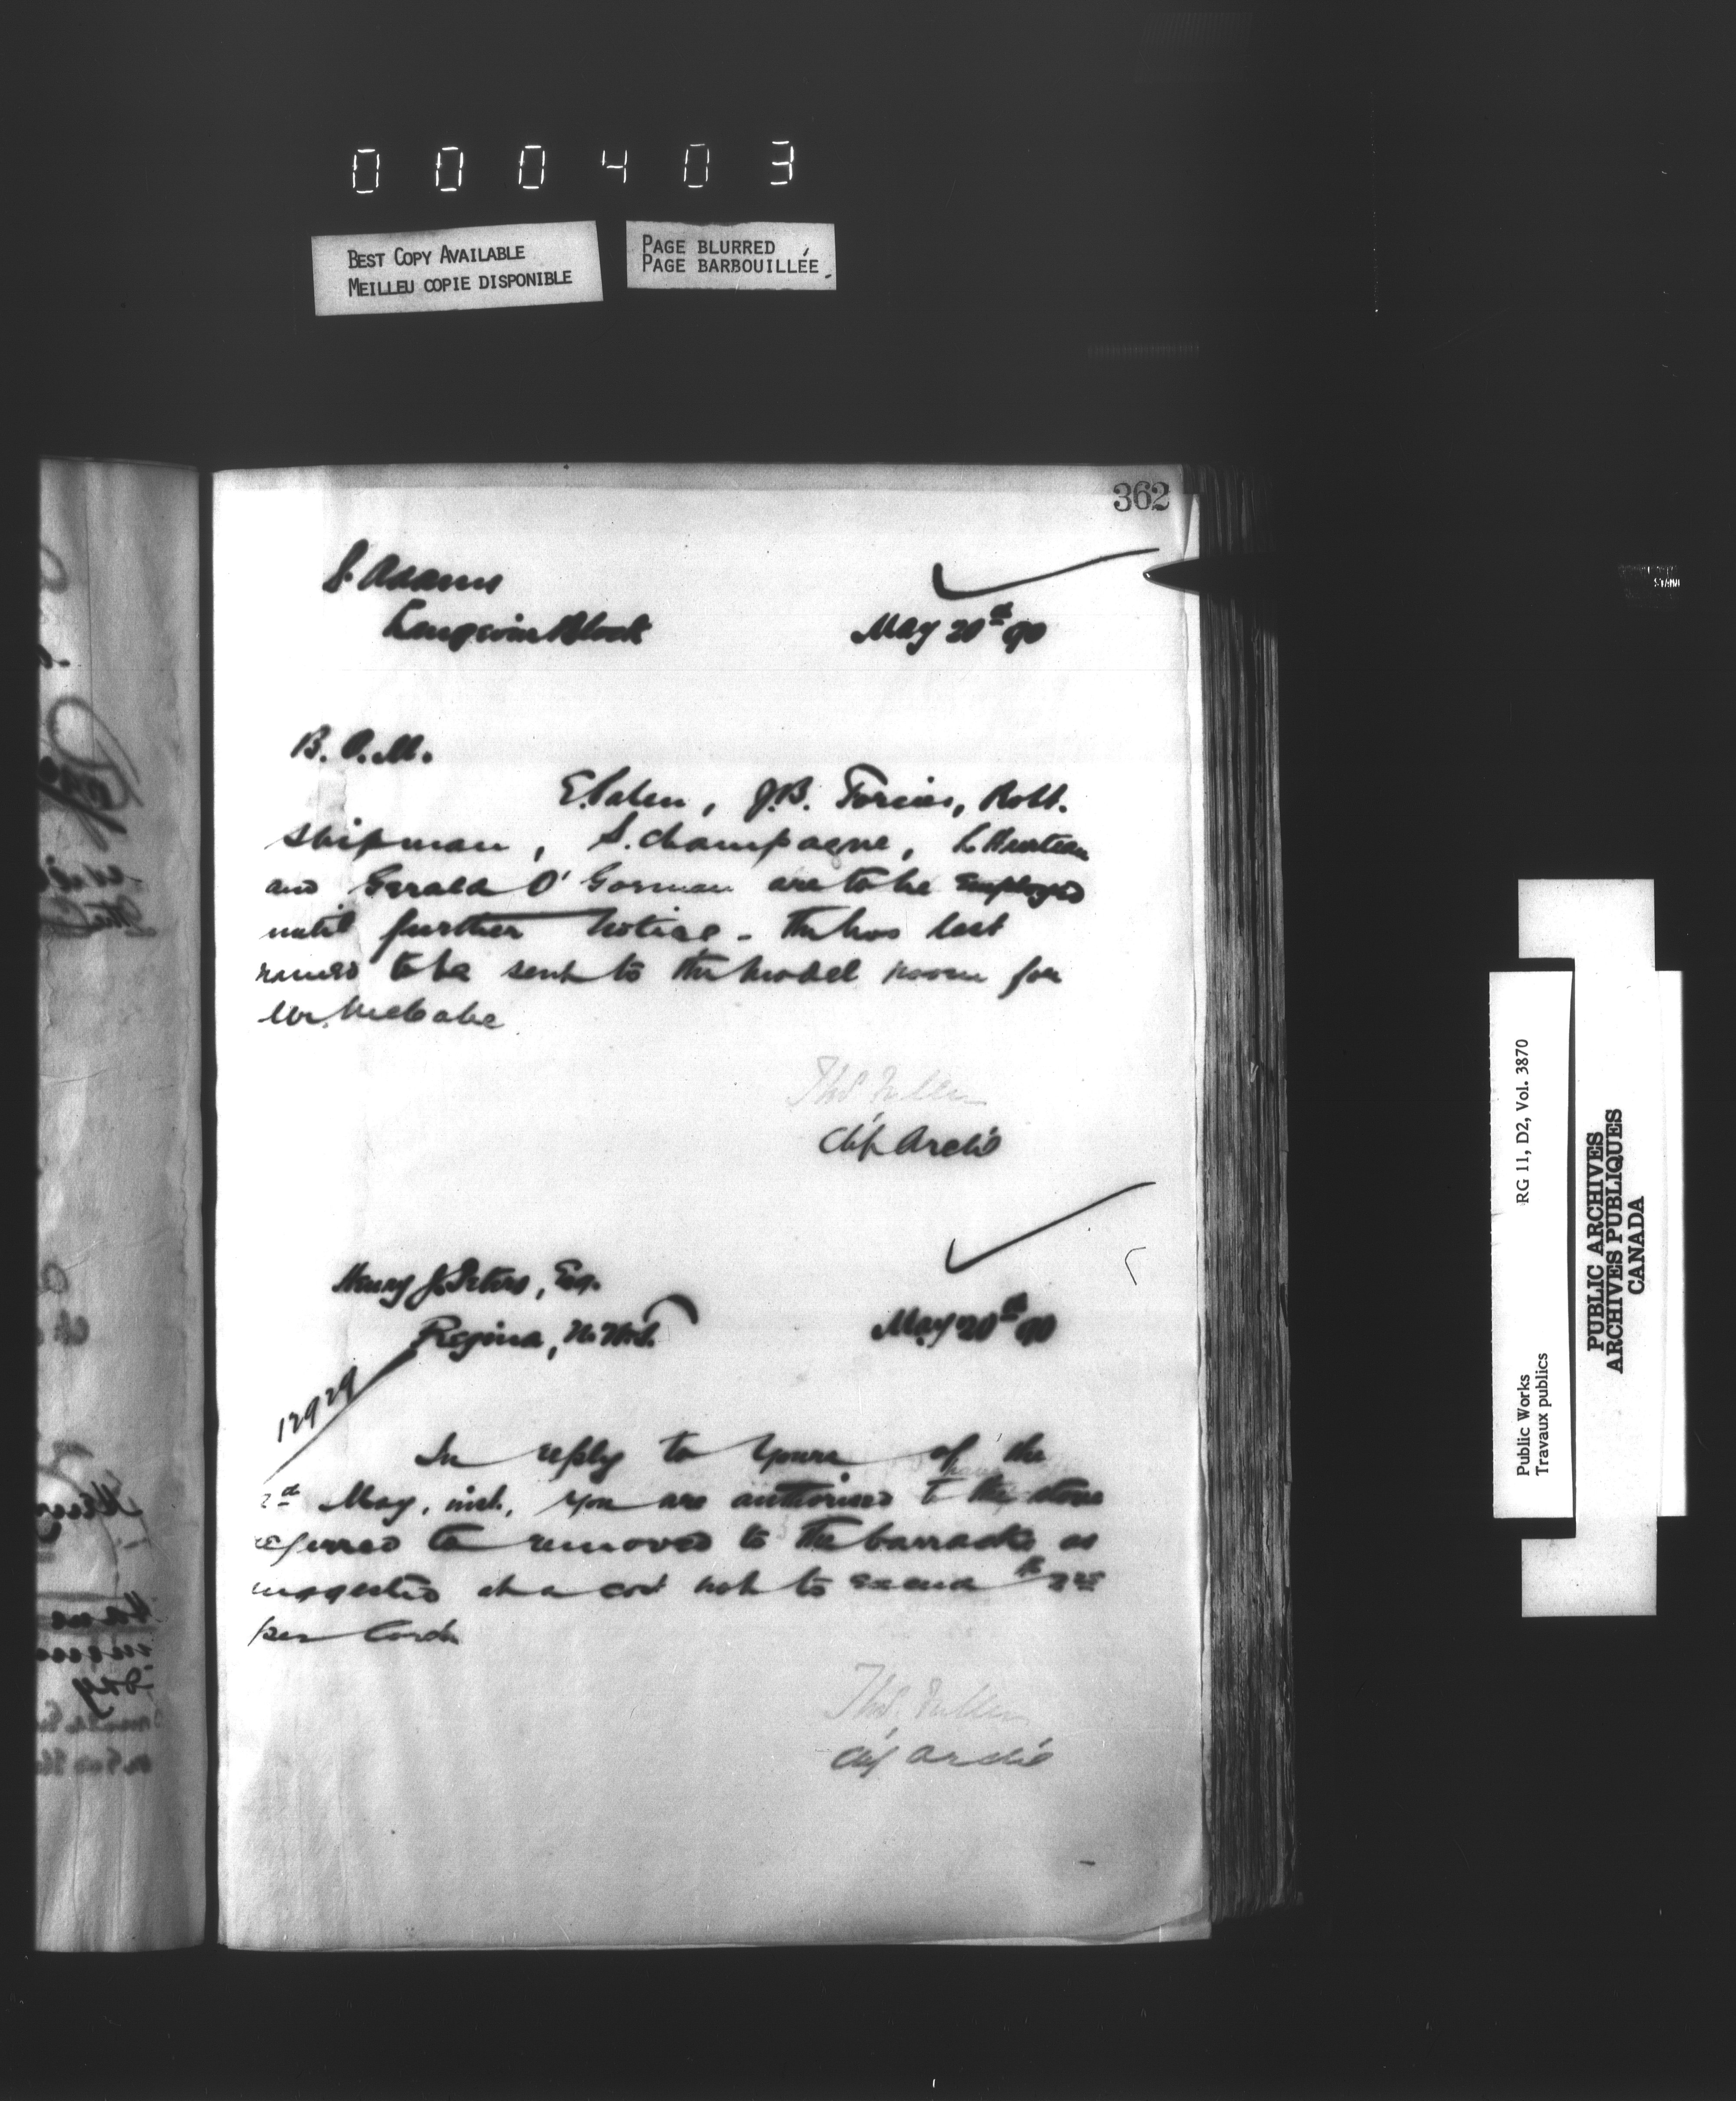 000403
BEST COPY AVAILABLE
MEILLEU COPIE DISPONIBLE
PAGE BLURRED
PAGE BARBOUILLÉE
362
S. Adams
Langevin Block
May 20th 90
B. O. M.
J.B. Robt.
Shipman, S. Champagne,
and Gerald O'Gorman are to be employed
until further notice - The two last
named to be sent to the model room for
Mr. McCabe
Thos Fuller
Chf Archt
Henry J. Peters, Esq.
Regina, N.W.T.
May 20th 90
12929
In reply to yours of the
May, inst, you are authorised to the stone
referred to removed to the barracks as
suggested at a cost not to exceed
per Cord
Thos. Fuller
Chf Archt
RG 11, D2, Vol. 3870
Public Works
Travaux publics
PUBLIC ARCHIVES
ARCHIVES PUBLIQUES
CANADA